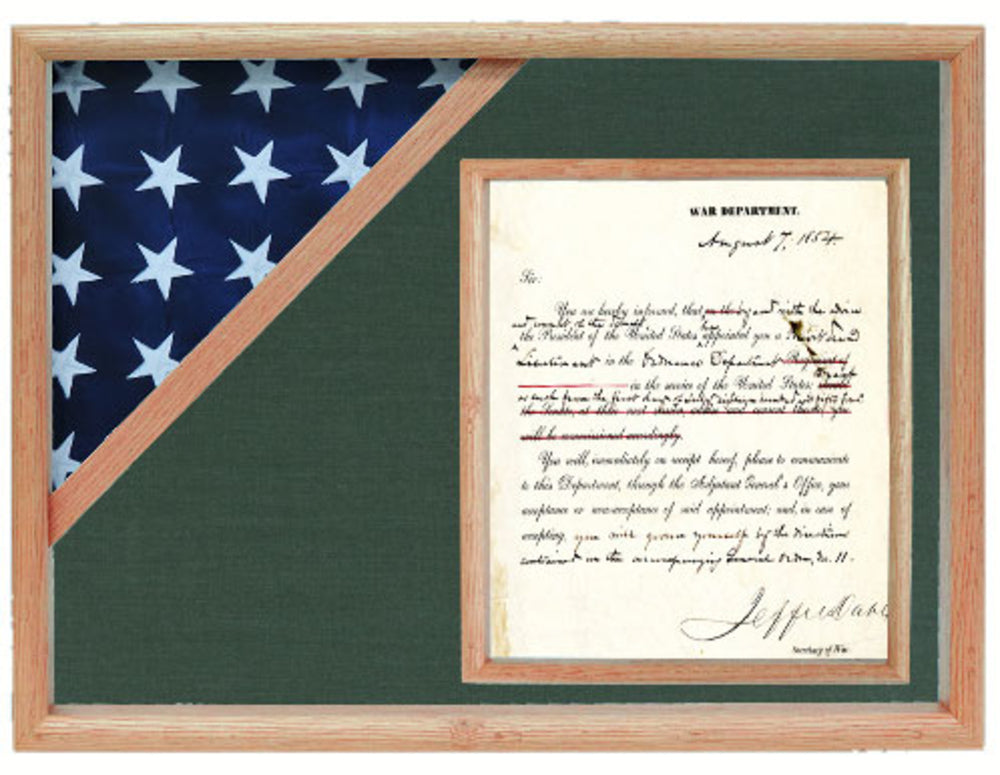 WAR DEPARTMENT.
August 7, 1854.
Sir:
You are hereby informed, that and with the advice
and consent of the Senate
the President of the United States appointed you a Second
Lieutenant in the Ordnance Department Regiment of
in the service of the United States:
as such from the first day of eighteen hundred and fifty four
will be commissioned accordingly.
You will, immediately on receipt hereof, please to communicate
to this Department, through the Adjutant General's Office, your
acceptance or non-acceptance of said appointment; and, in case of
accepting, you will govern yourself by the directions
contained in the accompanying General Order, No. 11.
Jeffn Davis
Secretary of War